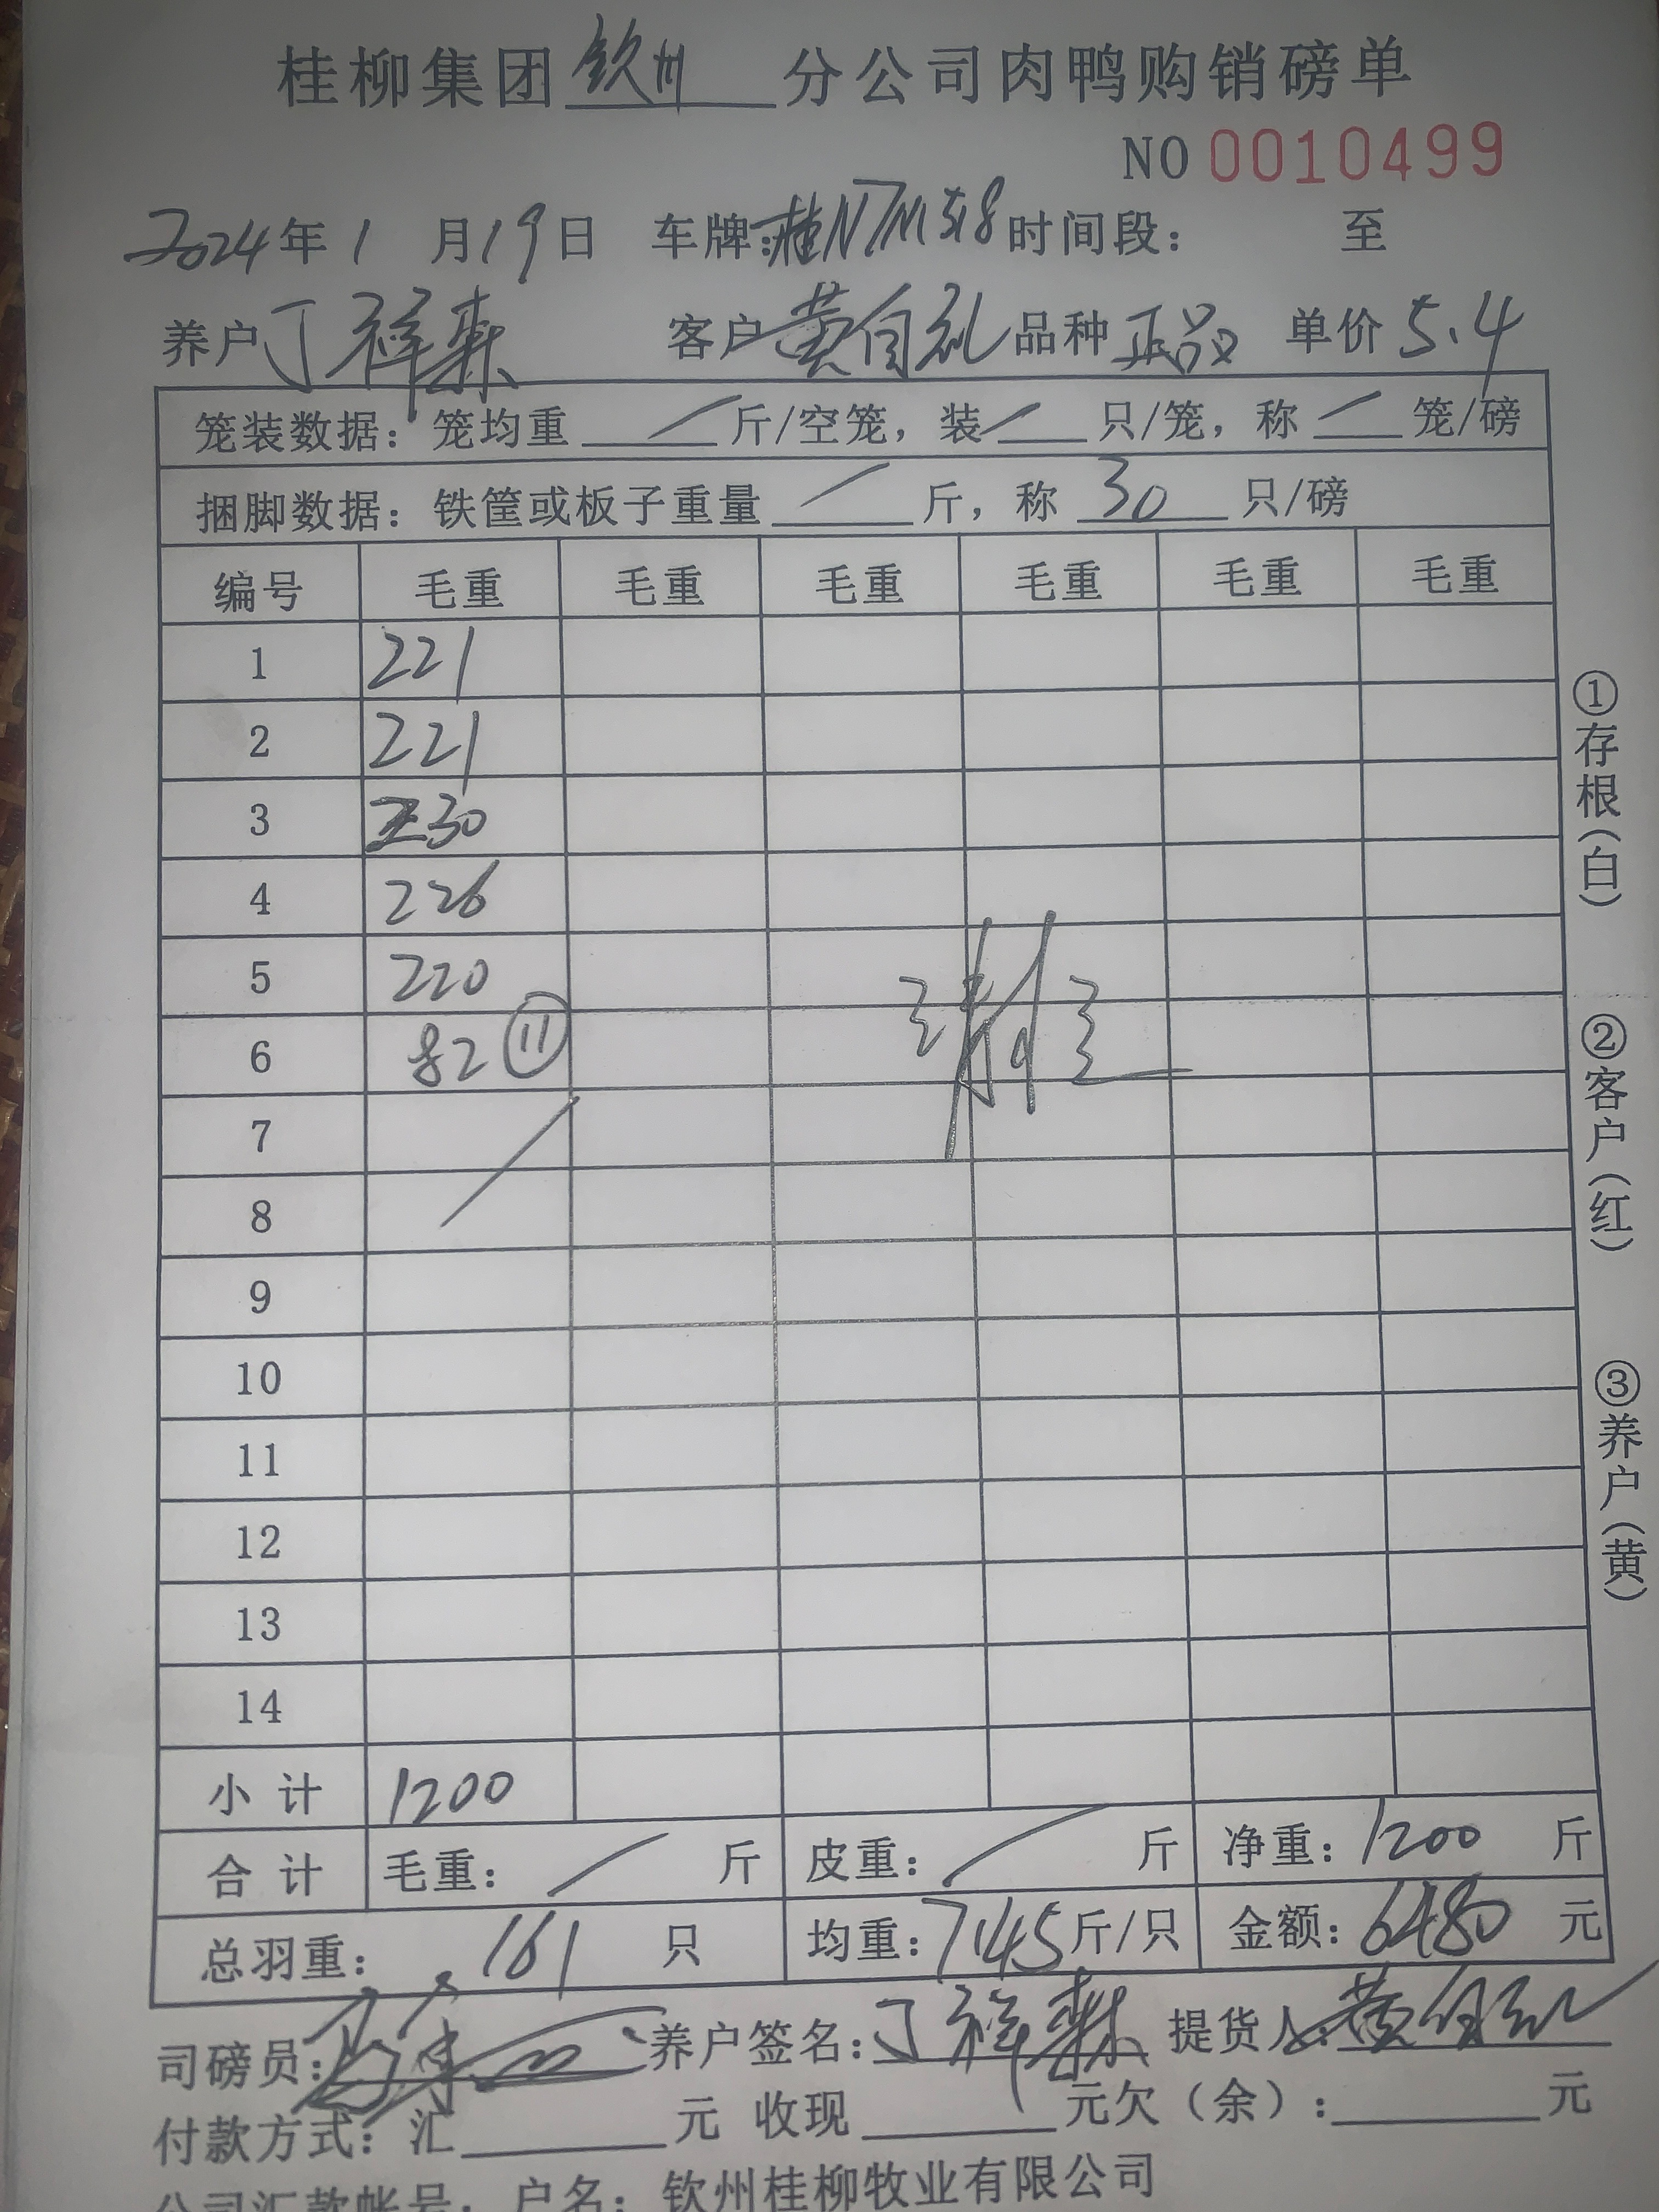 桂柳集团钦州分公司肉鸭购销磅单
NO 0010499
2024年1月19日 车牌:桂N7M518时间段: 至
养户丁祥 客户黄自礼品种正品 单价5.4
笼装数据: 笼均重 / 斤/空笼, 装 / 只/笼, 称 / 笼/磅
捆脚数据: 铁筐或板子重量 / 斤, 称 30 只/磅
编号 毛重 毛重 毛重 毛重 毛重 毛重
1 221
2 221
3 230
4 226
5 220
6 82 ⑪
7
8
9
10
11
12
13
14
小计 1200
合计 毛重: / 斤 皮重: / 斤 净重: 1200 斤
总羽重: 161 只 均重: 7.45斤/只 金额: 6480 元
司磅员: 养户签名: 丁祥 提货人:黄自礼
付款方式: 汇 元 收现 元欠(余): 元
公司汇款帐号: 户名: 钦州桂柳牧业有限公司
①存根(白)
②客户(红)
③养户(黄)